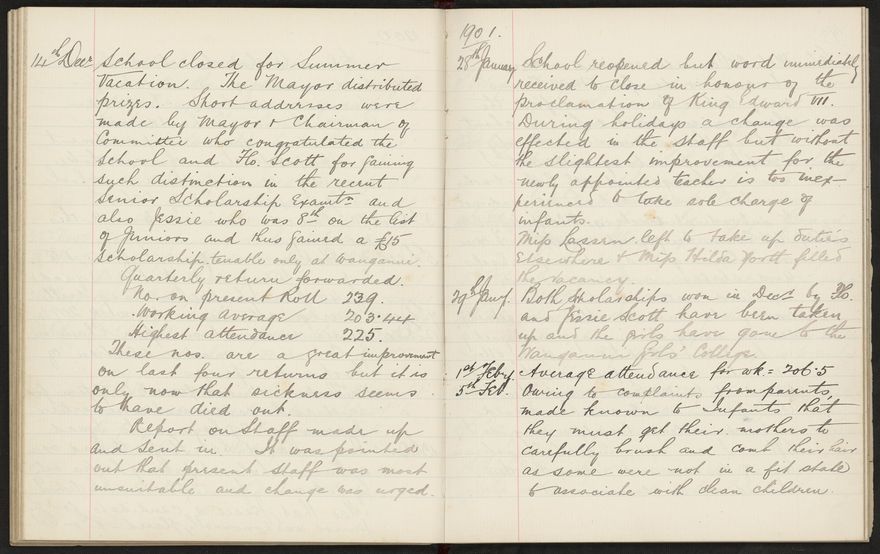 14th Decr School closed for Summer
Vacation. The Mayor distributed
prizes. Short addresses were
made by Mayor & Chairman of
Committee who congratulated the
School and Flo. Scott for gaining
such distinction in the recent
Senior Scholarship Examtn and
also Jessie who was 8th on the list
of Juniors and thus gained a £15
scholarship tenable only at Wanganui.
Quarterly return forwarded.
No. on present Roll 239.
Working average 203.44
Highest attendance 225.
These nos. are a great improvement
on last four returns but it is
only now that sickness seems
to have died out.
Report on Staff made up
and sent in. It was pointed
out that present staff was most
unsuitable and change was urged.
1901.
28th January School reopened but word immediately
received to close in honour of the
proclamation of King Edward VII.
During holidays a change was
effected in the staff but without
the slightest improvement for the
newly appointed teacher is too inex-
perienced to take sole charge of
infants.
Miss left to take up duties
Elsewhere & Miss Hilda filled
the vacancy.
29th Jany. Both scholarships won in Decr by Flo.
and Jessie Scott have been taken
up and the girls have gone to the
Wanganui Girls' College
1st Feby. Average attendance for wk = 206.5
5th Feb. Owing to complaints from parents,
made known to Infants that
they must get their mothers to
carefully brush and comb their hair
as some were not in a fit state
to associate with clean children.